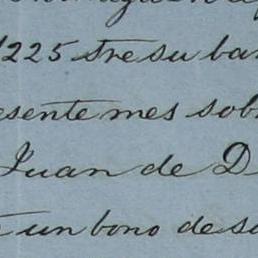 1225 stre su ba
esente mes sob
Juan de D
un bono de su